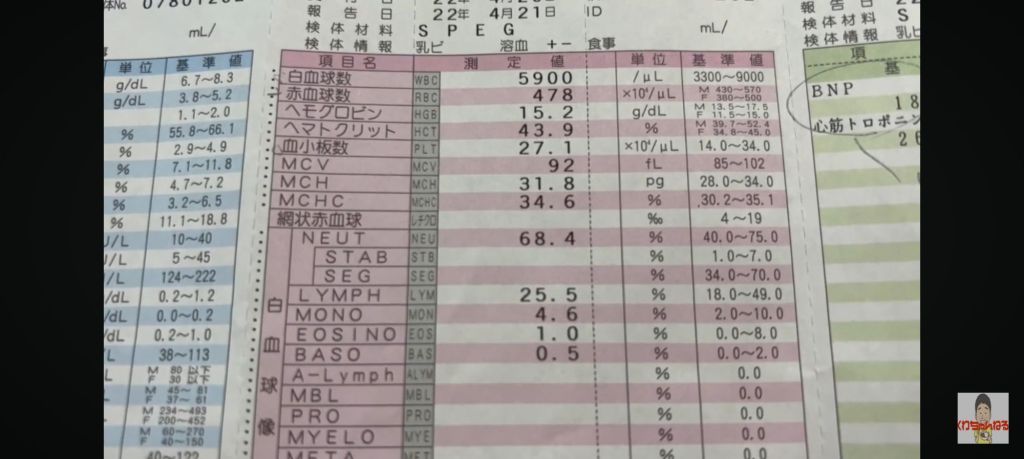 07801202
報告日 22年 4月21日 ID
検体材料 SPEG
mL/
検体情報 乳ビ 溶血 +- 食事
mL/
報告日
検体材料 S
検体情報 乳ビ
単位 基準値
g/dL 6.7〜8.3
g/dL 3.8〜5.2
1.1〜2.0
% 55.8〜66.1
% 2.9〜4.9
% 7.1〜11.8
% 4.7〜7.2
% 3.2〜6.5
% 11.1〜18.8
/L 10〜40
/L 5〜45
/L 124〜222
/dL 0.2〜1.2
/dL 0.0〜0.2
/dL 0.2〜1.0
/L 38〜113
M 80 以下
F 30 以下
M 45〜 81
F 37〜 61
M 234〜493
F 200〜452
M 60〜270
F 40〜150
40〜122
項目名 測定値 単位 基準値
白血球数 WBC 5900 /μL 3300〜9000
赤血球数 RBC 478 ×10⁴/μL M 430〜570 F 380〜500
ヘモグロビン HGB 15.2 g/dL M 13.5〜17.5 F 11.5〜15.0
ヘマトクリット HCT 43.9 % M 39.7〜52.4 F 34.8〜45.0
血小板数 PLT 27.1 ×10⁴/μL 14.0〜34.0
MCV MCV 92 fL 85〜102
MCH MCH 31.8 pg 28.0〜34.0
MCHC MCHC 34.6 % 30.2〜35.1
網状赤血球 レチクロ ‰ 4〜19
白血球像
NEUT NEU 68.4 % 40.0〜75.0
STAB STB % 1.0〜7.0
SEG SEG % 34.0〜70.0
LYMPH LYM 25.5 % 18.0〜49.0
MONO MON 4.6 % 2.0〜10.0
EOSINO EOS 1.0 % 0.0〜8.0
BASO BAS 0.5 % 0.0〜2.0
A-Lymph ALYM % 0.0
MBL MBL % 0.0
PRO PRO % 0.0
MYELO MYE % 0.0
META MET % 0.0
項
基
BNP
18
心筋トロポニン
26
くわちゃんねる